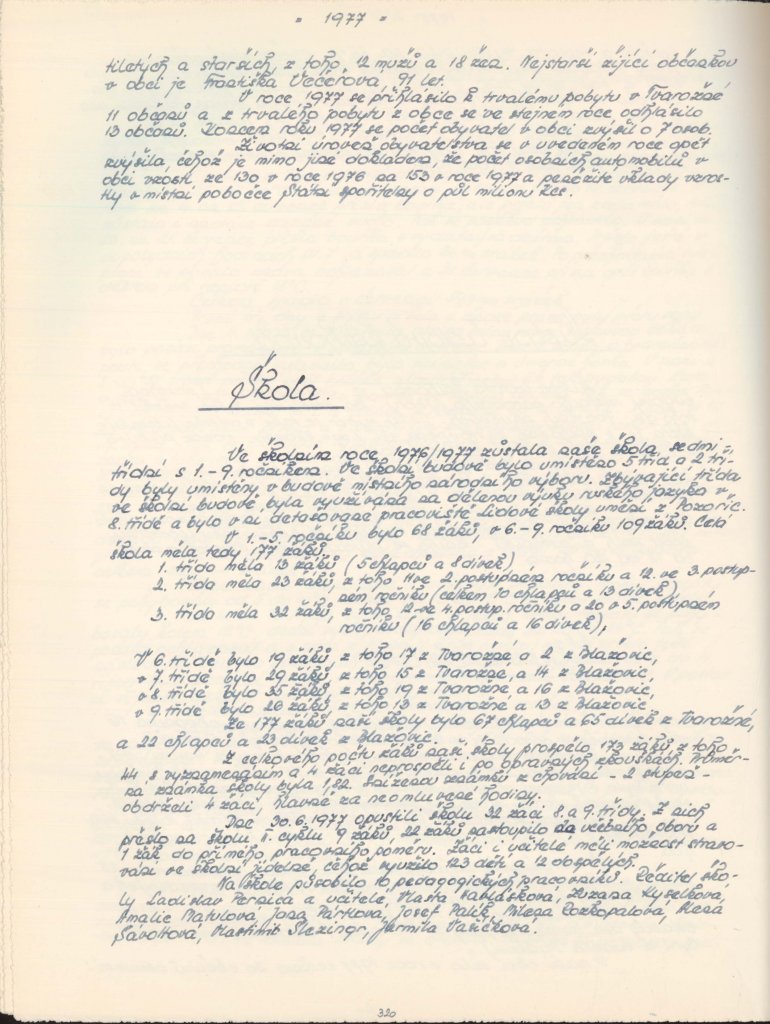 = 1977 =
tiletých a starších, z toho, 12 mužů a 18 žen. Nejstarší žijící občankou
v obci je Františka Večeřová, 91 let.
V roce 1977 se přihlásilo k trvalému pobytu v Tvarožné
11 občanů a z trvalého pobytu z obce se ve stejném roce odhlásilo
13 občanů. Koncem roku 1977 se počet obyvatel v obci zvýšil o 7 osob.
Životní úroveň obyvatelstva se v uvedeném roce opět
zvýšila, čehož je mimo jiné dokladem, že počet osobních automobilů v
obci vzrostl ze 130 v roce 1976 na 153 v roce 1977 a peněžité vklady vzros-
tly v místní pobočce Státní spořitelny o půl milionu Kčs.
Škola.
Ve školním roce 1976/1977 zůstala naše škola, sedmi
třídní s 1.-9. ročníkem. Ve školní budově bylo umístěno 5 tříd a 2 tří-
dy byly umístěny v budově místního národního výboru. Zbývající třída
ve školní budově byla využívána na dělenou výuku ruského jazyka v
8. třídě a bylo v ní detašované pracoviště Lidové školy umění z Pozořic.
V 1.-5. ročníku bylo 68 žáků, v 6.-9. ročníku 109 žáků. Celá
škola měla tedy 177 žáků.
1. třída měla 13 žáků (5 chlapců a 8 dívek)
2. třída měla 23 žáků, z toho 11 ve 2. postupném ročníku a 12. ve 3. postup-
ném ročníku (celkem 10 chlapců a 13 dívek)
3. třída měla 32 žáků, z toho 12 ve 4. postup. ročníku a 20 v 5. postupném
ročníku (16 chlapců a 16 dívek),
V 6. třídě bylo 19 žáků, z toho 17 z Tvarožné a 2 z Blažovic,
v 7. třídě bylo 29 žáků, z toho 15 z Tvarožné, a 14 z Blažovic,
v 8. třídě bylo 35 žáků z toho 19 z Tvarožné a 16 z Blažovic,
v 9. třídě bylo 26 žáků z toho 13 z Tvarožné a 13 z Blažovic.
Ze 177 žáků naší školy bylo 67 chlapců a 65 dívek z Tvarožné,
a 22 chlapců a 23 dívek z Blažovic.
Z celkového počtu žáků naší školy prospělo 173 žáků, z toho
44 s vyznamenáním a 4 žáci neprospěli i po opravných zkouškách. Průměr-
ná známka školy byla 1,82. Sníženou známku z chování - 2 stupeň -
obdrželi 4 žáci, hlavně za neomluvené hodiny.
Dne 30.6.1977 opustili školu 32 žáci 8. a 9. třídy. Z nich
přešlo na školu II. cyklu 9 žáků, 22 žáků nastoupilo do učebního oboru a
1 žák do přímého, pracovního poměru. Žáci i učitelé měli možnost stravo-
vání ve školní jídelně, čehož využilo 123 dětí a 12 dospělých.
Na škole působilo 10 pedagogických pracovníků. Ředitel ško-
ly Ladislav Pernica a učitelé, Vlasta Kubová, Zuzana Kyselková,
Amalie Matulová, Jana Párková, Josef Palík, Milena Rozkopalová, Alena
Sávoltová, Vlastimil Slezingr, Jarmila Vašíčková.
320